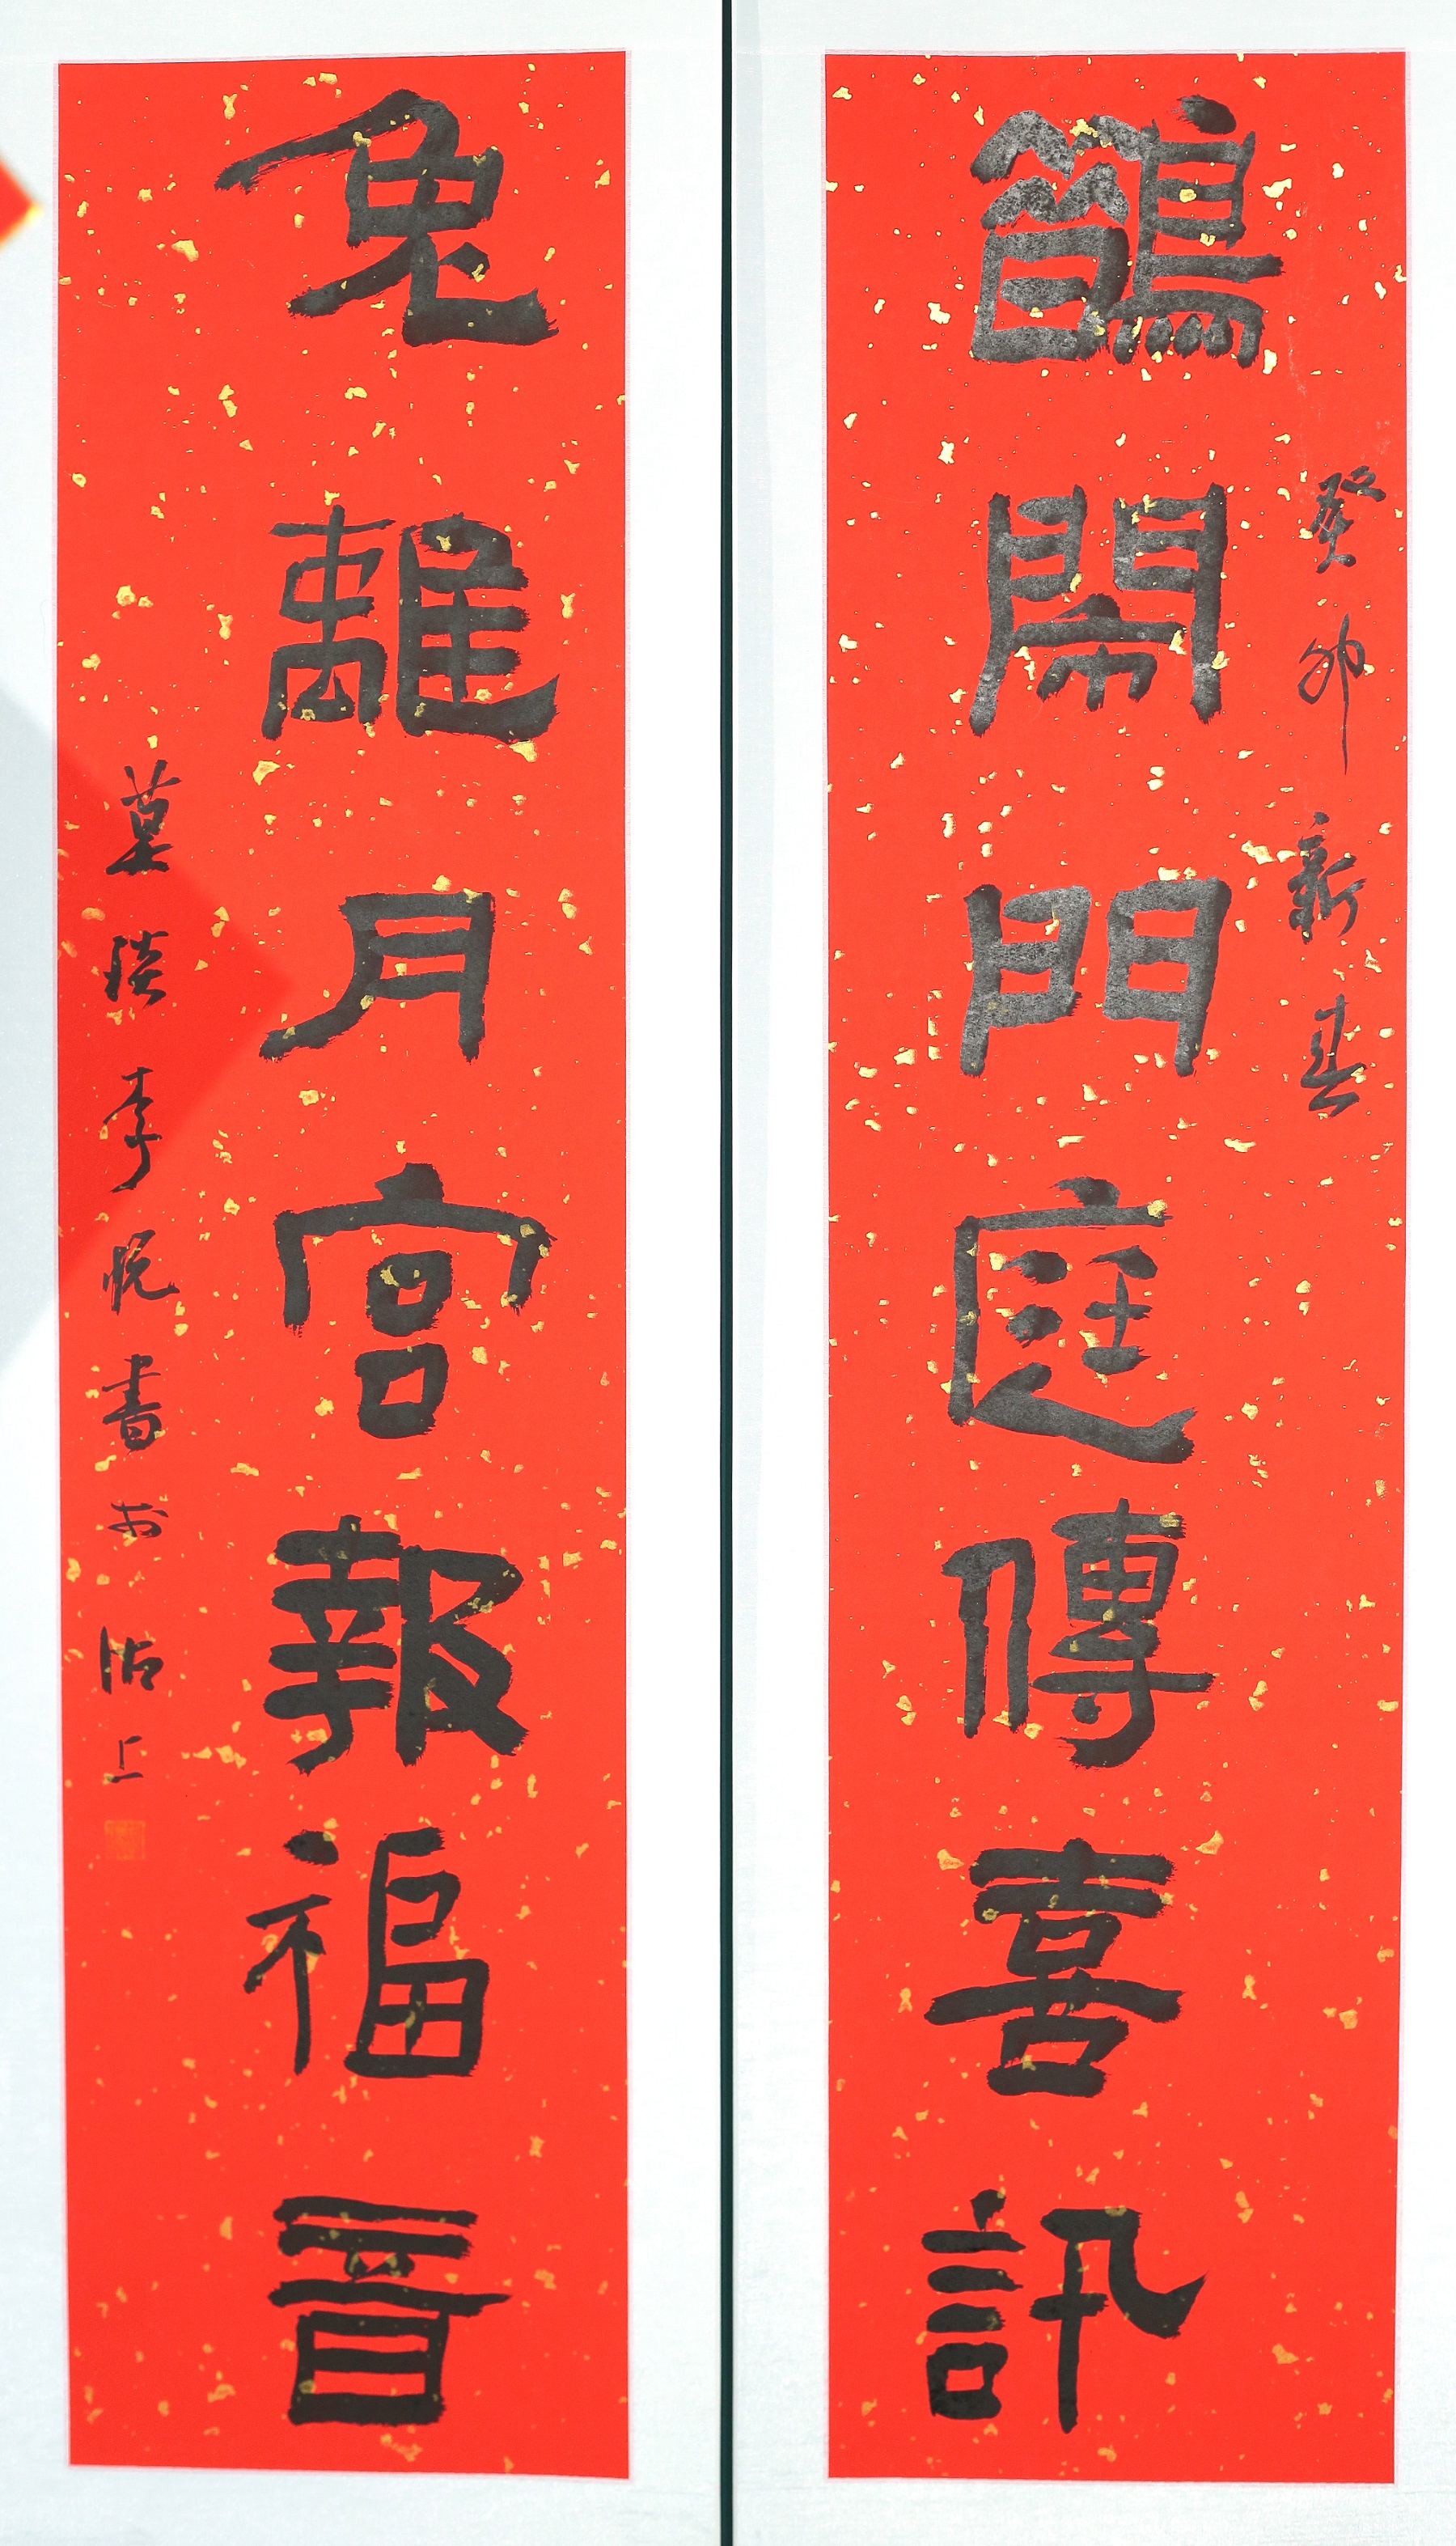 癸卯新春
鵲鬧門庭傳喜訊
兔離月宮報福音
董琰李悦書於沽上